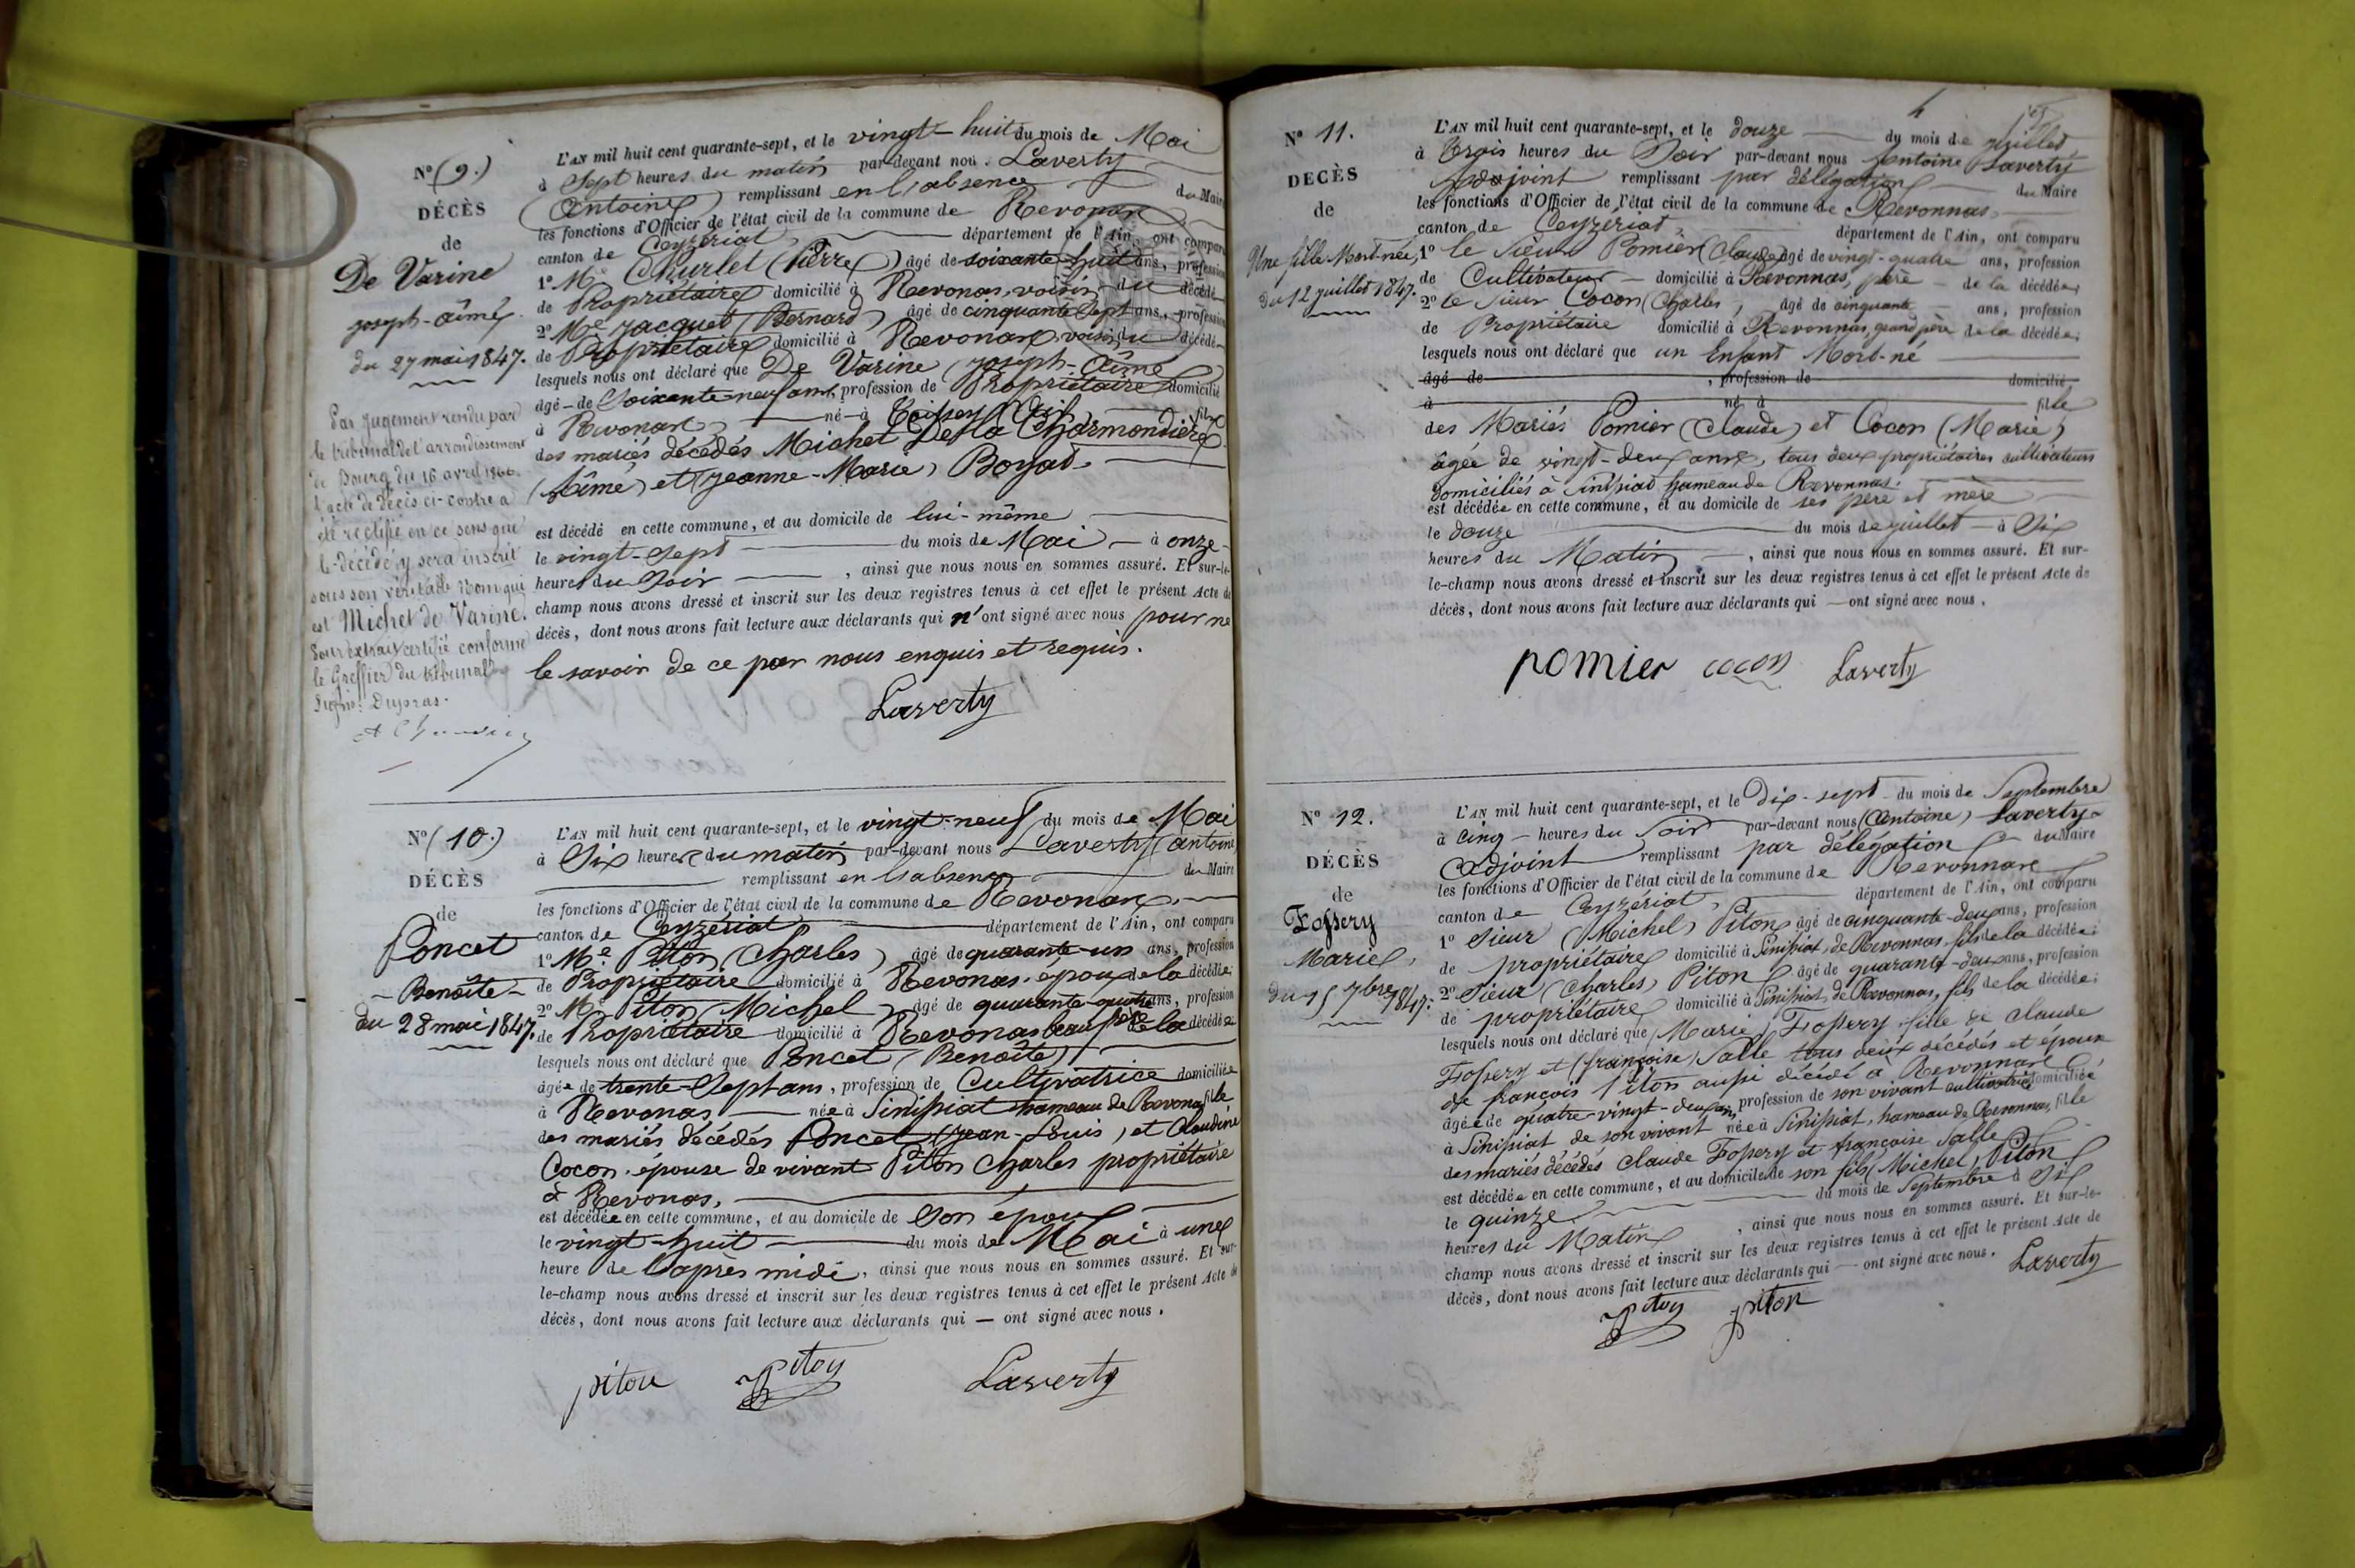 N° (9.)
DÉCÈS
de
De Varine
joseph-aimé.
du 27 mai 1847.
Par jugement rendu par
le tribunal de l'arrondissement
de Bourg du 16 avril 1866
l'acte de décès ci-contre a
été rectifié en ce sens que
le décédé y sera inscrit
sous son véritable nom qui
est Michet de Varine.
Pour extrait certifié conforme
le Greffier du tribunal
Signé: Dupras.
L'AN mil huit cent quarante-sept, et le vingt-huit du mois de Mai
à Sept heures du matin par-devant nou. Laverty
(Antoine) remplissant en l'absence du Maire
les fonctions d'Officier de l'état civil de la commune de Revonas
canton de Ceyzériat, département de l'Ain, ont comparu
1° Me Churlet (Pierre) âgé de soixante-huit ans, profession
de Propriétaire domicilié à Revonas, voisin du décédé
2° Me Jacquet (Bernard) âgé de cinquante-sept ans, profession
de Propriétaire domicilié à Revonas, voisin du décédé
lesquels nous ont déclaré que De Varine (joseph-Aimé
âgé de Soixante-neuf ans, profession de Propriétaire domicilié
à Revonas, né à (Ain) fils
des mariés décédés Michet De la Charmondière
(Aimé) et (jeanne-Marie) Boyat.
est décédé en cette commune, et au domicile de lui-même
le vingt-sept du mois de Mai à onze
heures du Soir, ainsi que nous nous en sommes assuré. Et sur-le-
champ nous avons dressé et inscrit sur les deux registres tenus à cet effet le présent Acte de
décès, dont nous avons fait lecture aux déclarants qui n'ont signé avec nous pour ne
le savoir de ce par nous enquis et requis.
Laverty
N° (10.)
DÉCÈS
de
Poncet
- Benoîte -
du 28 mai 1847.
L'AN mil huit cent quarante-sept, et le vingt-neuf du mois de Mai
à Six heures du matin par-devant nous Laverty (Antoine
remplissant en l'absence du Maire
les fonctions d'Officier de l'état civil de la commune de Revonas,
canton de Ceyzériat département de l'Ain, ont comparu
1° Me Piton (Charles) âgé de quarante-un ans, profession
de Propriétaire domicilié à Revonas, époux de la décédée;
2° Me Piton (Michel) âgé de quarante-quatre ans, profession
de Propriétaire domicilié à Revonas beau père de la décédée
lesquels nous ont déclaré que Poncet (Benoîte)
âgée de trente-Sept ans, profession de Cultivatrice domiciliée
à Revonas née à Sinissiat hameau de Revonas fille
des mariés décédés Poncet (jean-Louis) et Claudine
Cocon. épouse de vivant Piton Charles propriétaire
à Revonas,
est décédée en cette commune, et au domicile de Son époux
le vingt-huit du mois de Mai à une
heure de l'après midi, ainsi que nous nous en sommes assuré. Et sur-
le-champ nous avons dressé et inscrit sur les deux registres tenus à cet effet le présent Acte de
décès, dont nous avons fait lecture aux déclarants qui — ont signé avec nous.
piton Piton Laverty
4
N° 11.
DECÈS
de
Une fille Mort-née,
du 12 juillet 1847.
L'AN mil huit cent quarante-sept, et le douze du mois de juillet
à trois heures du Soir par-devant nous Antoine Laverty
Adjoint remplissant par délégation du Maire
les fonctions d'Officier de l'état civil de la commune de Revonnas,
canton de Ceyzériat, département de l'Ain, ont comparu
1° le Sieur Pomier (Claude) âgé de vingt-quatre ans, profession
de Cultivateur domicilié à Revonnas, père de la décédée;
2° le Sieur Cocon (Charles, âgé de cinquante ans, profession
de Propriétaire domicilié à Revonnas, grand père de la décédée;
lesquels nous ont déclaré que un Enfant Mort-né
âgé de , profession de domicilié
à né à fille
des Mariés Pomier (Claude) et Cocon (Marie)
âgée de vingt-deux ans, tous deux propriétaires cultivateurs
domiciliés à Sinissiat hameau de Revonnas.
est décédée en cette commune, et au domicile de ses père et mère
le douze du mois de juillet à Six
heures du Matin, ainsi que nous nous en sommes assuré. Et sur-
le-champ nous avons dressé et inscrit sur les deux registres tenus à cet effet le présent Acte de
décès, dont nous avons fait lecture aux déclarants qui — ont signé avec nous.
pomier cocon Laverty
N° 12.
DÉCÈS
de
Fossery
Marie,
du 15 7bre 1847.
L'AN mil huit cent quarante-sept, et le Dix-sept du mois de Septembre
à cinq heures du Soir par-devant nous (Antoine) Laverty
Adjoint remplissant par délégation du Maire
les fonctions d'Officier de l'état civil de la commune de Revonnas
canton de Ceyzériat, département de l'Ain, ont comparu
1° Sieur (Michel) Piton âgé de cinquante-deux ans, profession
de propriétaire domicilié à Sinissiat, de Revonnas, fils de la décédée;
2° Sieur (Charles) Piton âgé de quarante-deux ans, profession
de propriétaire domicilié à Sinissiat de Revonnas, fils de la décédée;
lesquels nous ont déclaré que (Marie) Fossery fille de Claude
Fossery et (françoise) Salle tous deux décédés et épouse
de françois Piton aussi décédé à Revonnas
âgée de quatre-vingt-deux ans, profession de son vivant cultivatrice domiciliée
à Sinissiat de son vivant née à Sinissiat, hameau de Revonnas, fille
des mariés décédés Claude Fossery et françoise Salle
est décédée en cette commune, et au domicile de son fils (Michel) Piton
le quinze du mois de Septembre à Six
heures du Matin, ainsi que nous nous en sommes assuré. Et sur-le-
champ nous avons dressé et inscrit sur les deux registres tenus à cet effet le présent Acte de
décès, dont nous avons fait lecture aux déclarants qui — ont signé avec nous. Laverty
Piton piton